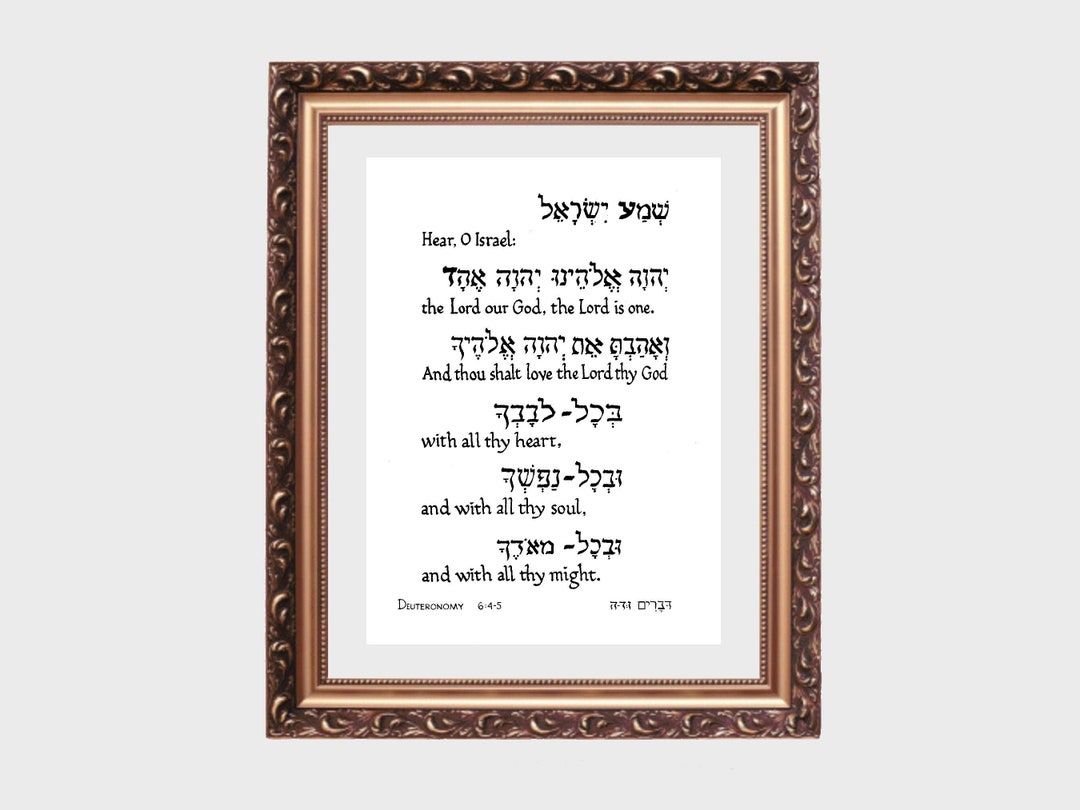 שְׁמַע יִשְׂרָאֵל
Hear, O Israel:
יְהוָה אֱלֹהֵינוּ יְהוָה אֶחָד
the Lord our God, the Lord is one.
וְאָהַבְתָּ אֵת יְהוָה אֱלֹהֶיךָ
And thou shalt love the Lord thy God
בְּכָל- לבָבְךָ
with all thy heart,
וּבְכָל-נַפְשְׁךָ
and with all thy soul,
וּבְכָל- מאֹדֶךָ
and with all thy might.
DEUTERONOMY 6:4-5 דְּבָרִים ו:ד-ה